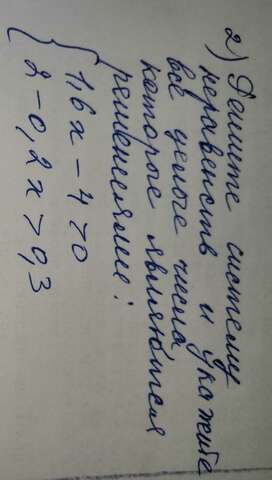 2) Решите систему
неравенств и укажите
все целые числа
которое являются
решениями:
1,6x - 4 > 0
2 - 0,2x > 0,3